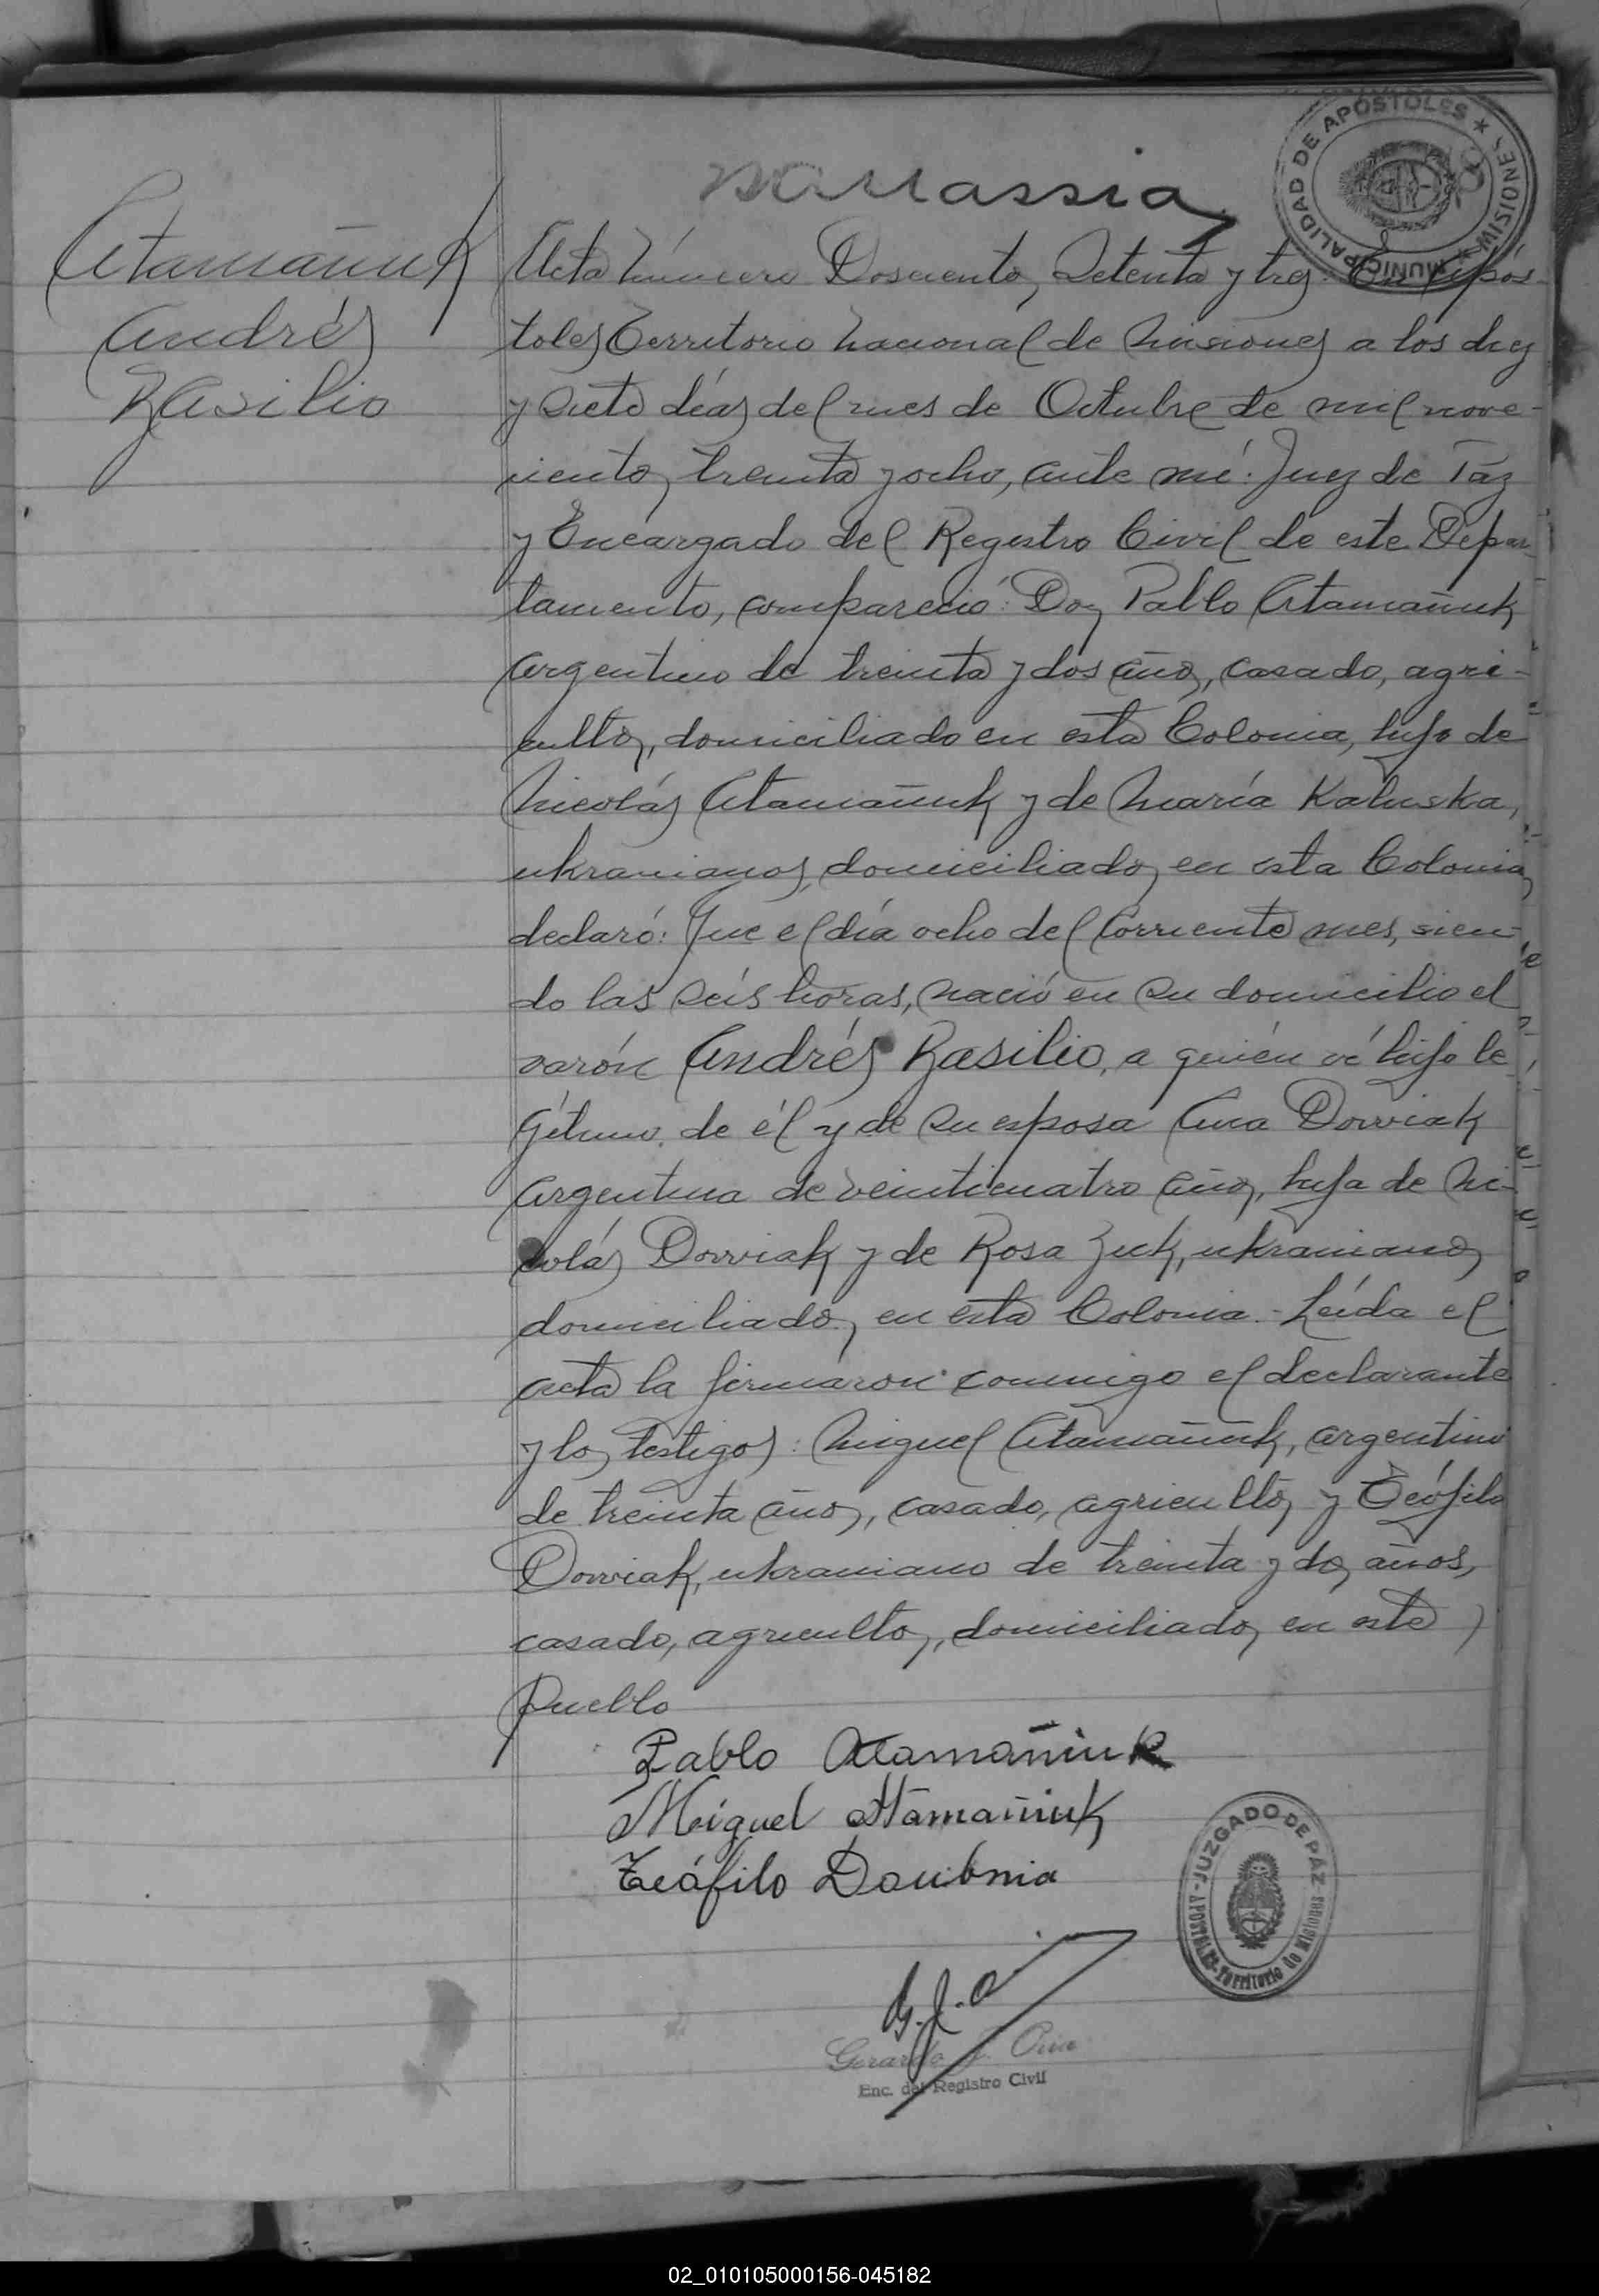 MUNICIPALIDAD DE APOSTOLES * MISIONES *
Atamañuk
Andrés
Basilio
Acta número Doscientos Setenta y tres: En Após-
toles Territorio Nacional de Misiones a los diez
y siete días del mes de Octubre de mil nove-
cientos treinta y ocho, ante mí: Juez de Paz
y Encargado del Registro Civil de este Depar-
tamento, compareció: Don Pablo Atamañuk
argentino de treinta y dos años, casado, agri-
cultor, domiciliado en esta Colonia, hijo de
Nicolás Atamañuk y de María Kaluska,
ukranianos, domiciliados en esta Colonia
declaró: Que el día ocho del corriente mes, sien-
do las seis horas, nació en su domicilio el
varón Andrés Basilio, a quién vé hijo le
gítimo, de él y de su esposa Ana Dowiak
argentina de veinticuatro años, hija de Ni-
colás Dowiak y de Rosa Zuk, ukranianos
domiciliados en esta Colonia.- Leída el
acta la firmaron conmigo el declarante
y los testigos: Miguel Atamañuk, argentino
de treinta años, casado, agricultor y Teófilo
Dowiak, ukraniano de treinta y dos años,
casado, agricultor, domiciliados en este
Pueblo
Pablo Atamañiuk
Miguel Atamañiuk
Teófilo Doubnia
JUZGADO DE PAZ
APOSTOLES - Territorio de Misiones
Gerardo J.
Enc. del Registro Civil
02_010105000156-045182